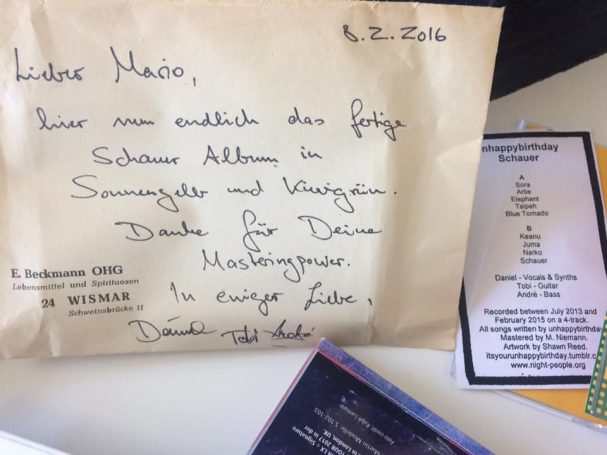 8.2.2016
Lieber Mario,
hier nun endlich das fertige
Schauer Album in
Sonnengelb und Kiwigrün.
Danke für Deine
Masteringpower.
In ewiger Liebe,
Tobi André
E. Beckmann OHG
Lebensmittel und Spirituosen
24 WISMAR
Schweinsbrücke 11
unhappybirthday
Schauer
A
Sora
Artie
Elephant
Taipeh
Blue Tornado
B
Keanu
Juma
Narko
Schauer
Daniel - Vocals & Synths
Tobi - Guitar
André - Bass
Recorded between July 2013 and
February 2015 on a 4-track.
All songs written by unhappybirthday
Mastered by M. Niemann.
Artwork by Shawn Reed.
itsyourunhappybirthday.tumblr.c
www.night-people.org